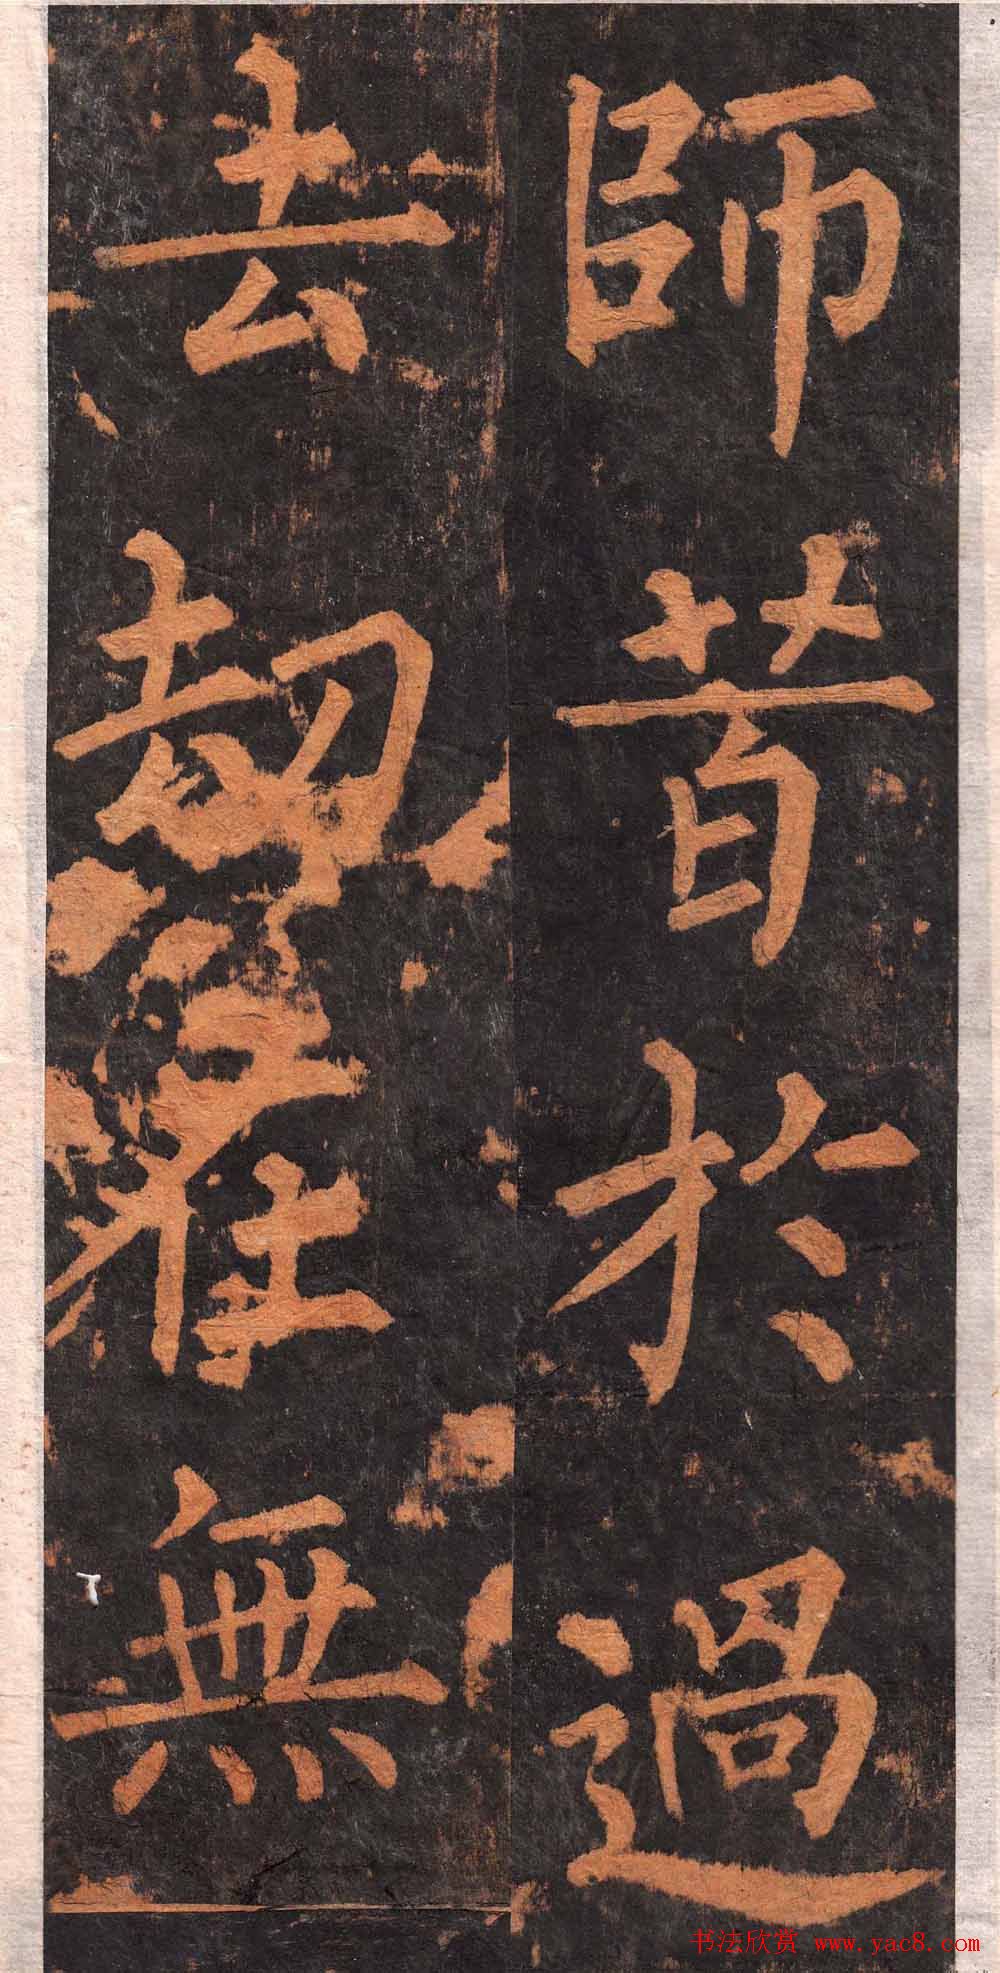 師昔於過
去劫羅無
书法欣赏 www.yac8.com